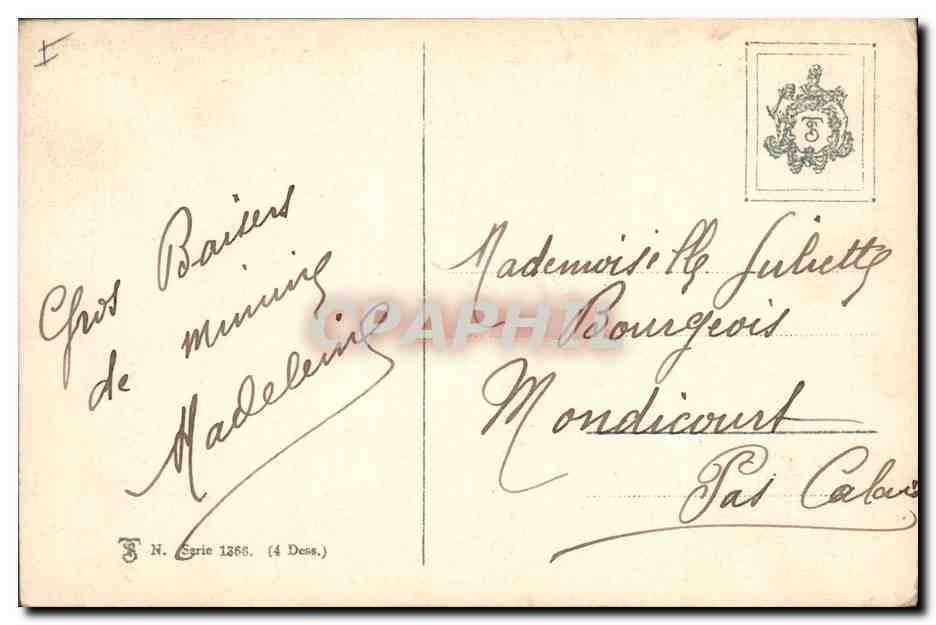 Gros Baisers
de Mimine
Madeleine
N. Serie 1366. (4 Dess.)
Mademoiselle Juliette
Bourgeois
Mondicourt
Pas Calais
CPAPHIL